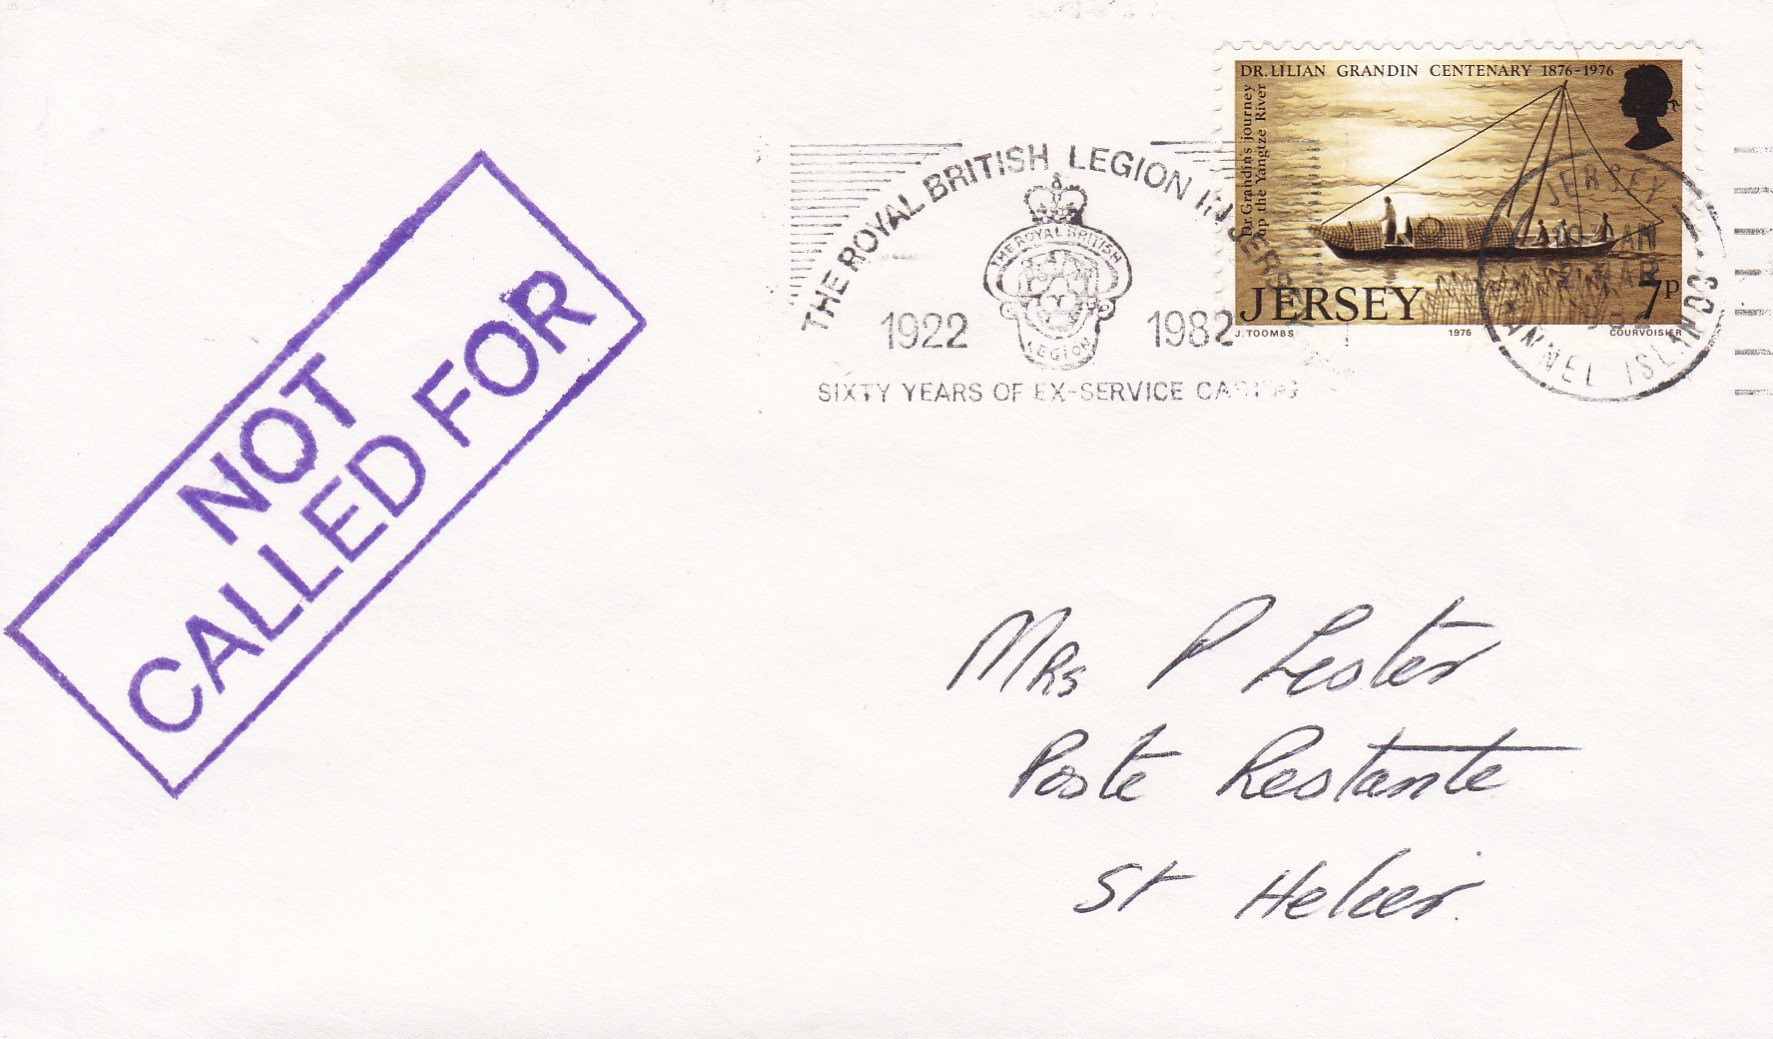 DR. LILIAN GRANDIN CENTENARY 1876-1976
Dr. Grandin's journey
up the Yangtze River
JERSEY
7p
J. TOOMBS 1976 COURVOISIER
THE ROYAL BRITISH LEGION IN JERSEY
THE ROYAL BRITISH
LEGION
1922 1982
SIXTY YEARS OF EX-SERVICE CARING
JERSEY
AM
MAR
CHANNEL ISLANDS
NOT
CALLED FOR
Mrs P Lester
Poste Restante
St Helier.